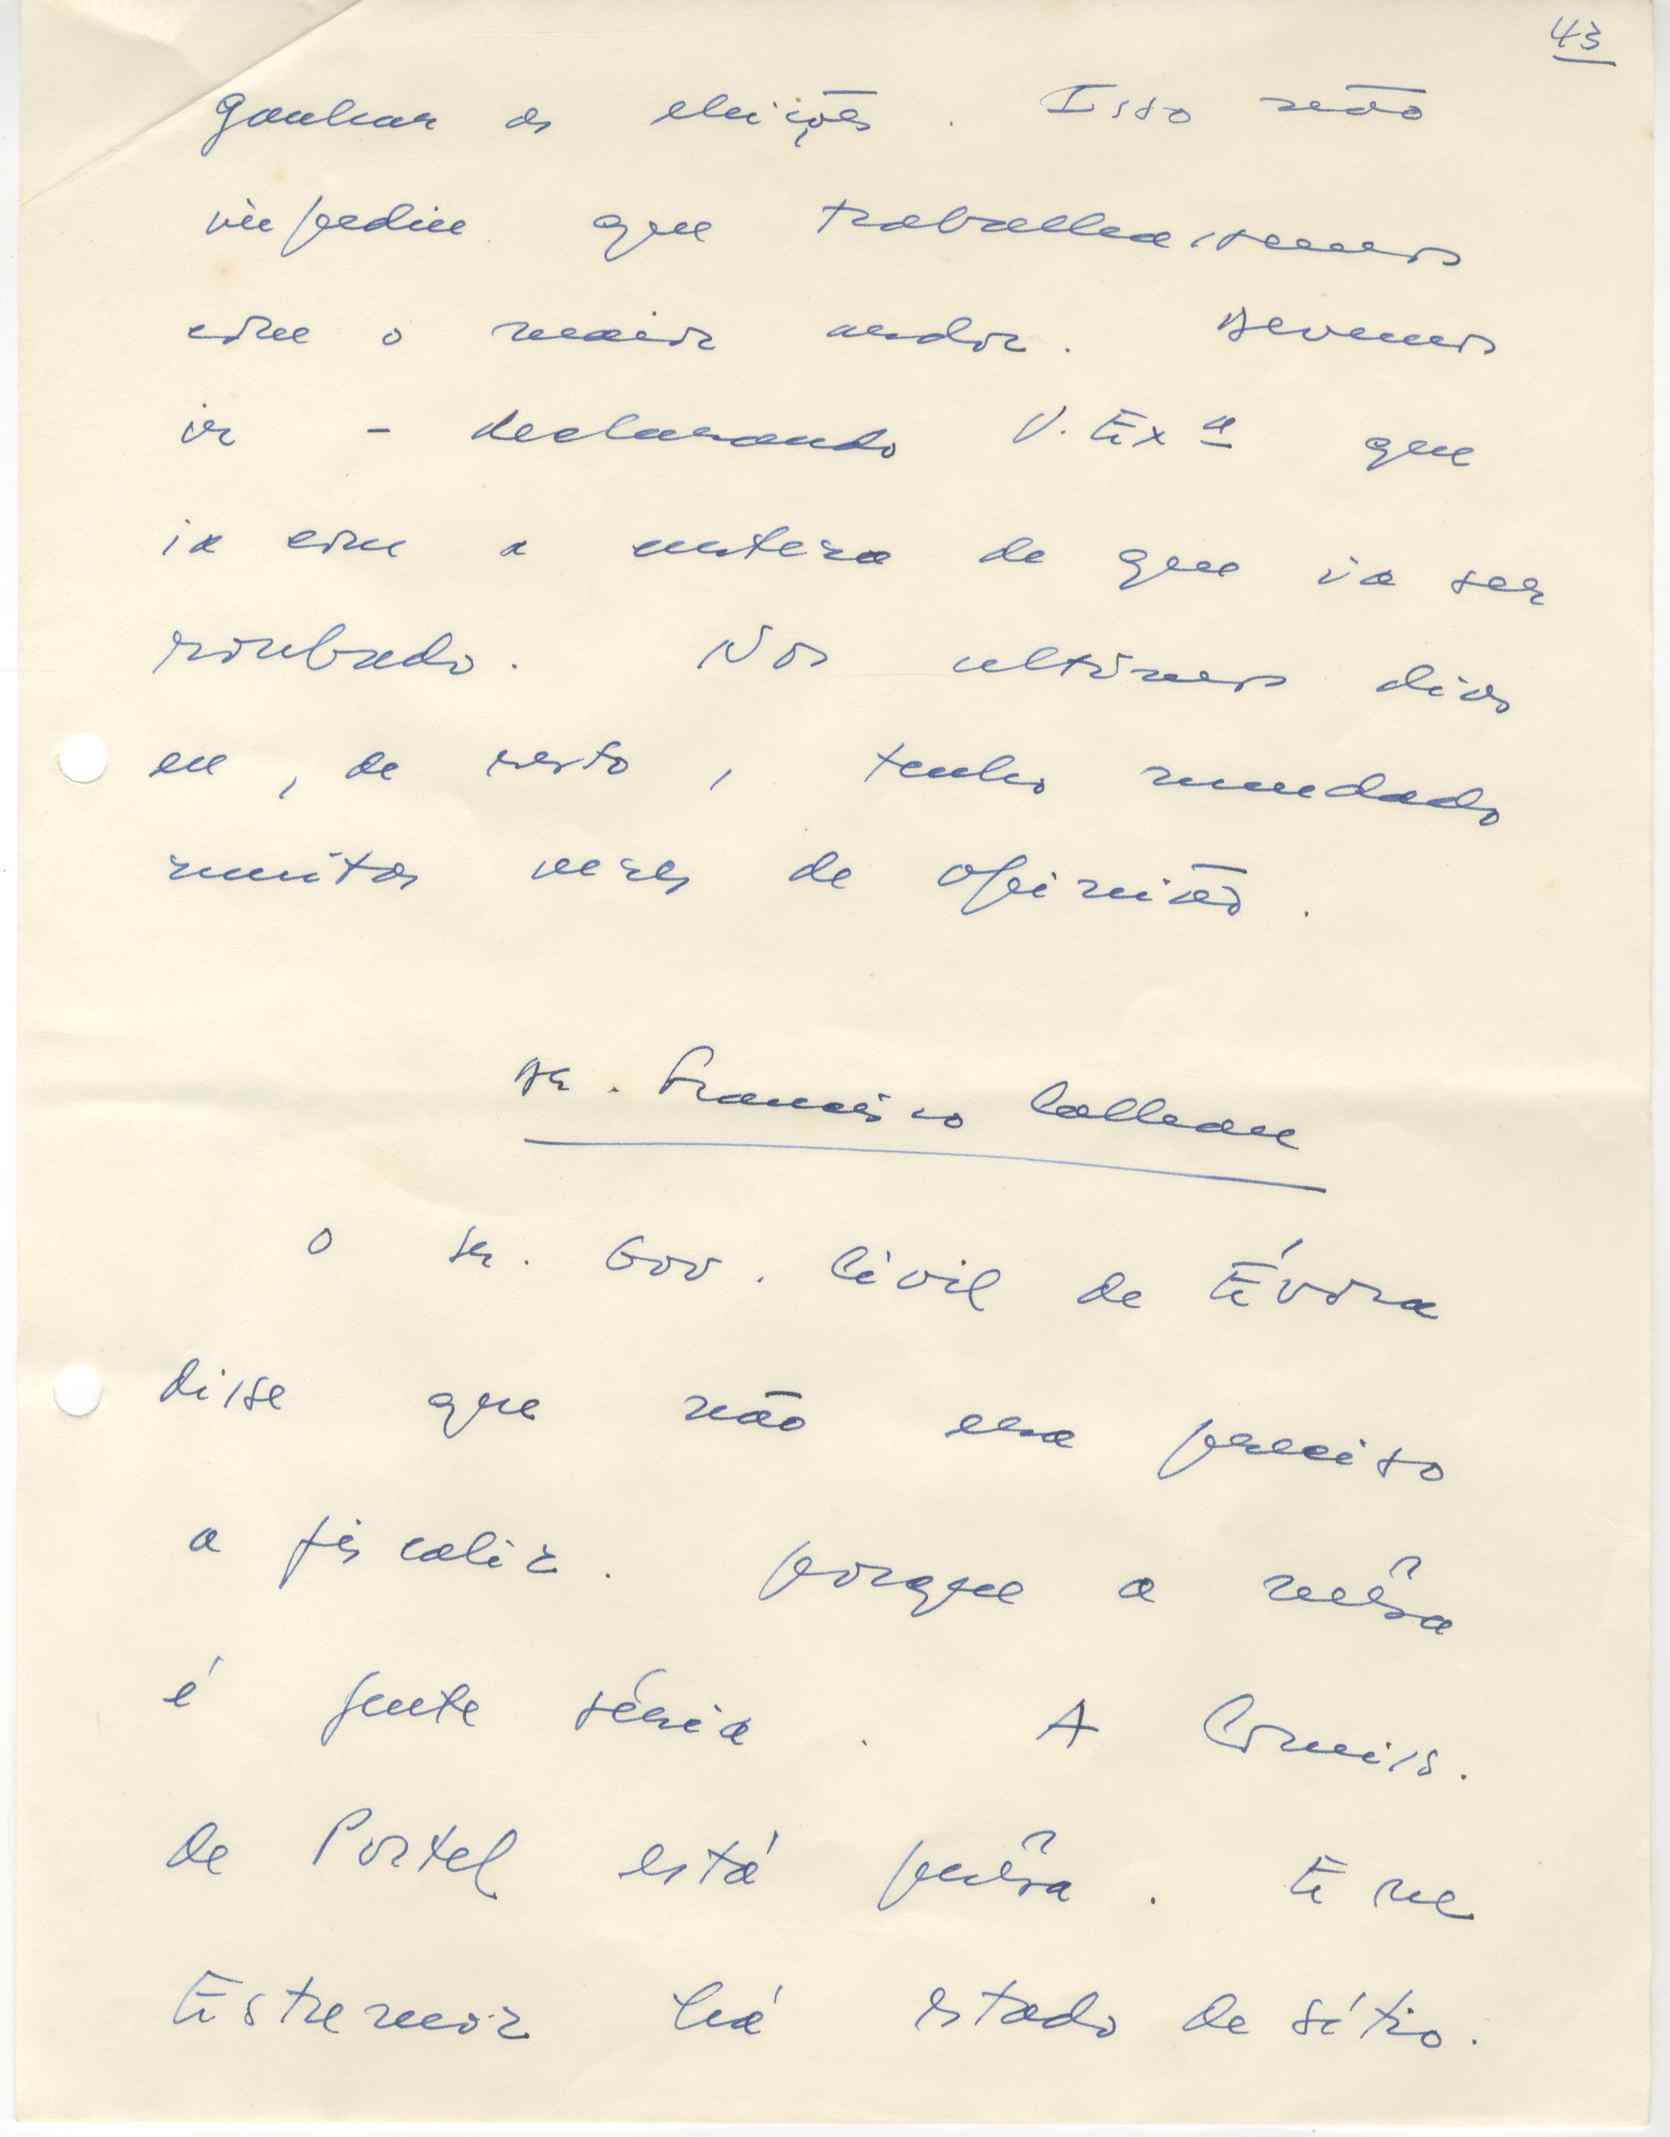 43
ganhar as eleições. Isso não
impediu que trabalhássemos
com o maior ardor. Devemos
ir - declarando V. Exª que
ia com a certeza de que ia ser
roubado. Nos ultimos dias
eu, de resto, tenho mudado
muitas vezes de opinião.
Dr. Francisco Callean
O Sr. Gov. Civil de Évora
disse que não era preciso
a fiscaliz. porque a mêsa
é gente séria. A Comiss.
de Portel está prêsa. Em
Estremoz há estado de sítio.